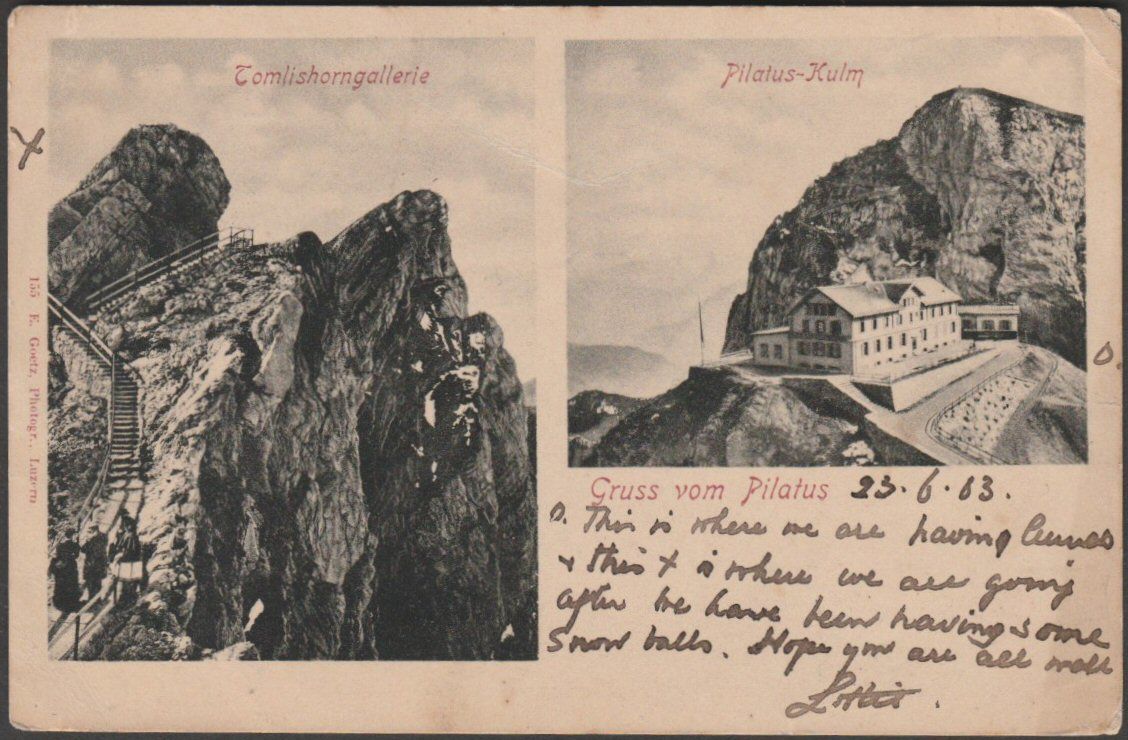 Tomlishorngallerie
Pilatus-Kulm
X
155 E. Goetz, Photogr., Luzern
O.
Gruss vom Pilatus 23.6.03.
O. This is where we are having lunch
& this X is where we are going
after. We have been having some
Snow balls. Hope you are all well
Lottie.